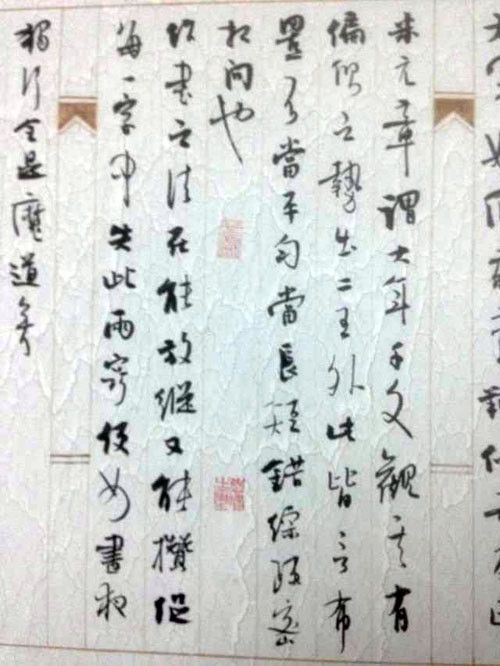 米元章謂大年千文觀其有
偏側之勢出二王外此皆言布
置不當平勻當長短錯綜疏密
相間也
作書之法在能放縱又能攢捉
每一字中失此兩竅便如晝夜
獨行全是魔道矣